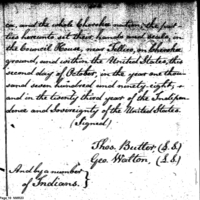 ca, and the whole Cherokee nation, the par-
ties hereunto set their hands and seals, in
the Council House, near Tellico, on Cherokee
ground, and within the United States, this
second day of October, in the year one thou-
sand seven hundred and ninety-eight, +
and in the twenty third year of the Indepen-
dence and Sovereignty of the United States.
(Signed)
Thos. Butler (L.S.)
Geo. Walton. (L.S.)
And by a number
of Indians. }